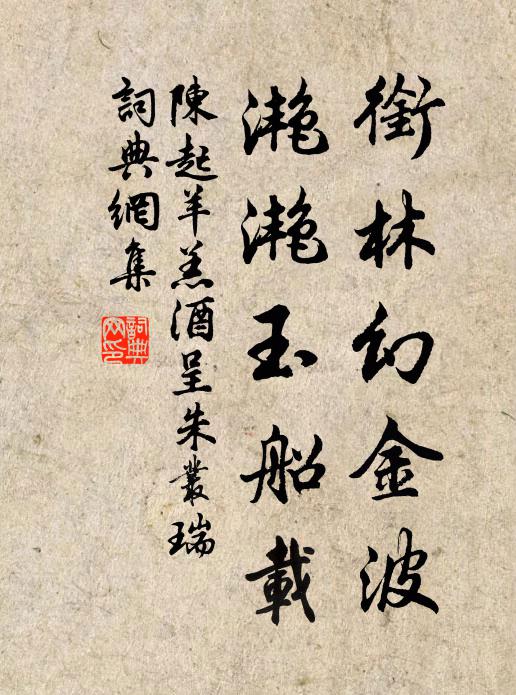 衔林幻金波
滟滟玉船載
陳起羊羔酒呈朱叢瑞
詞典網集
詞典網印